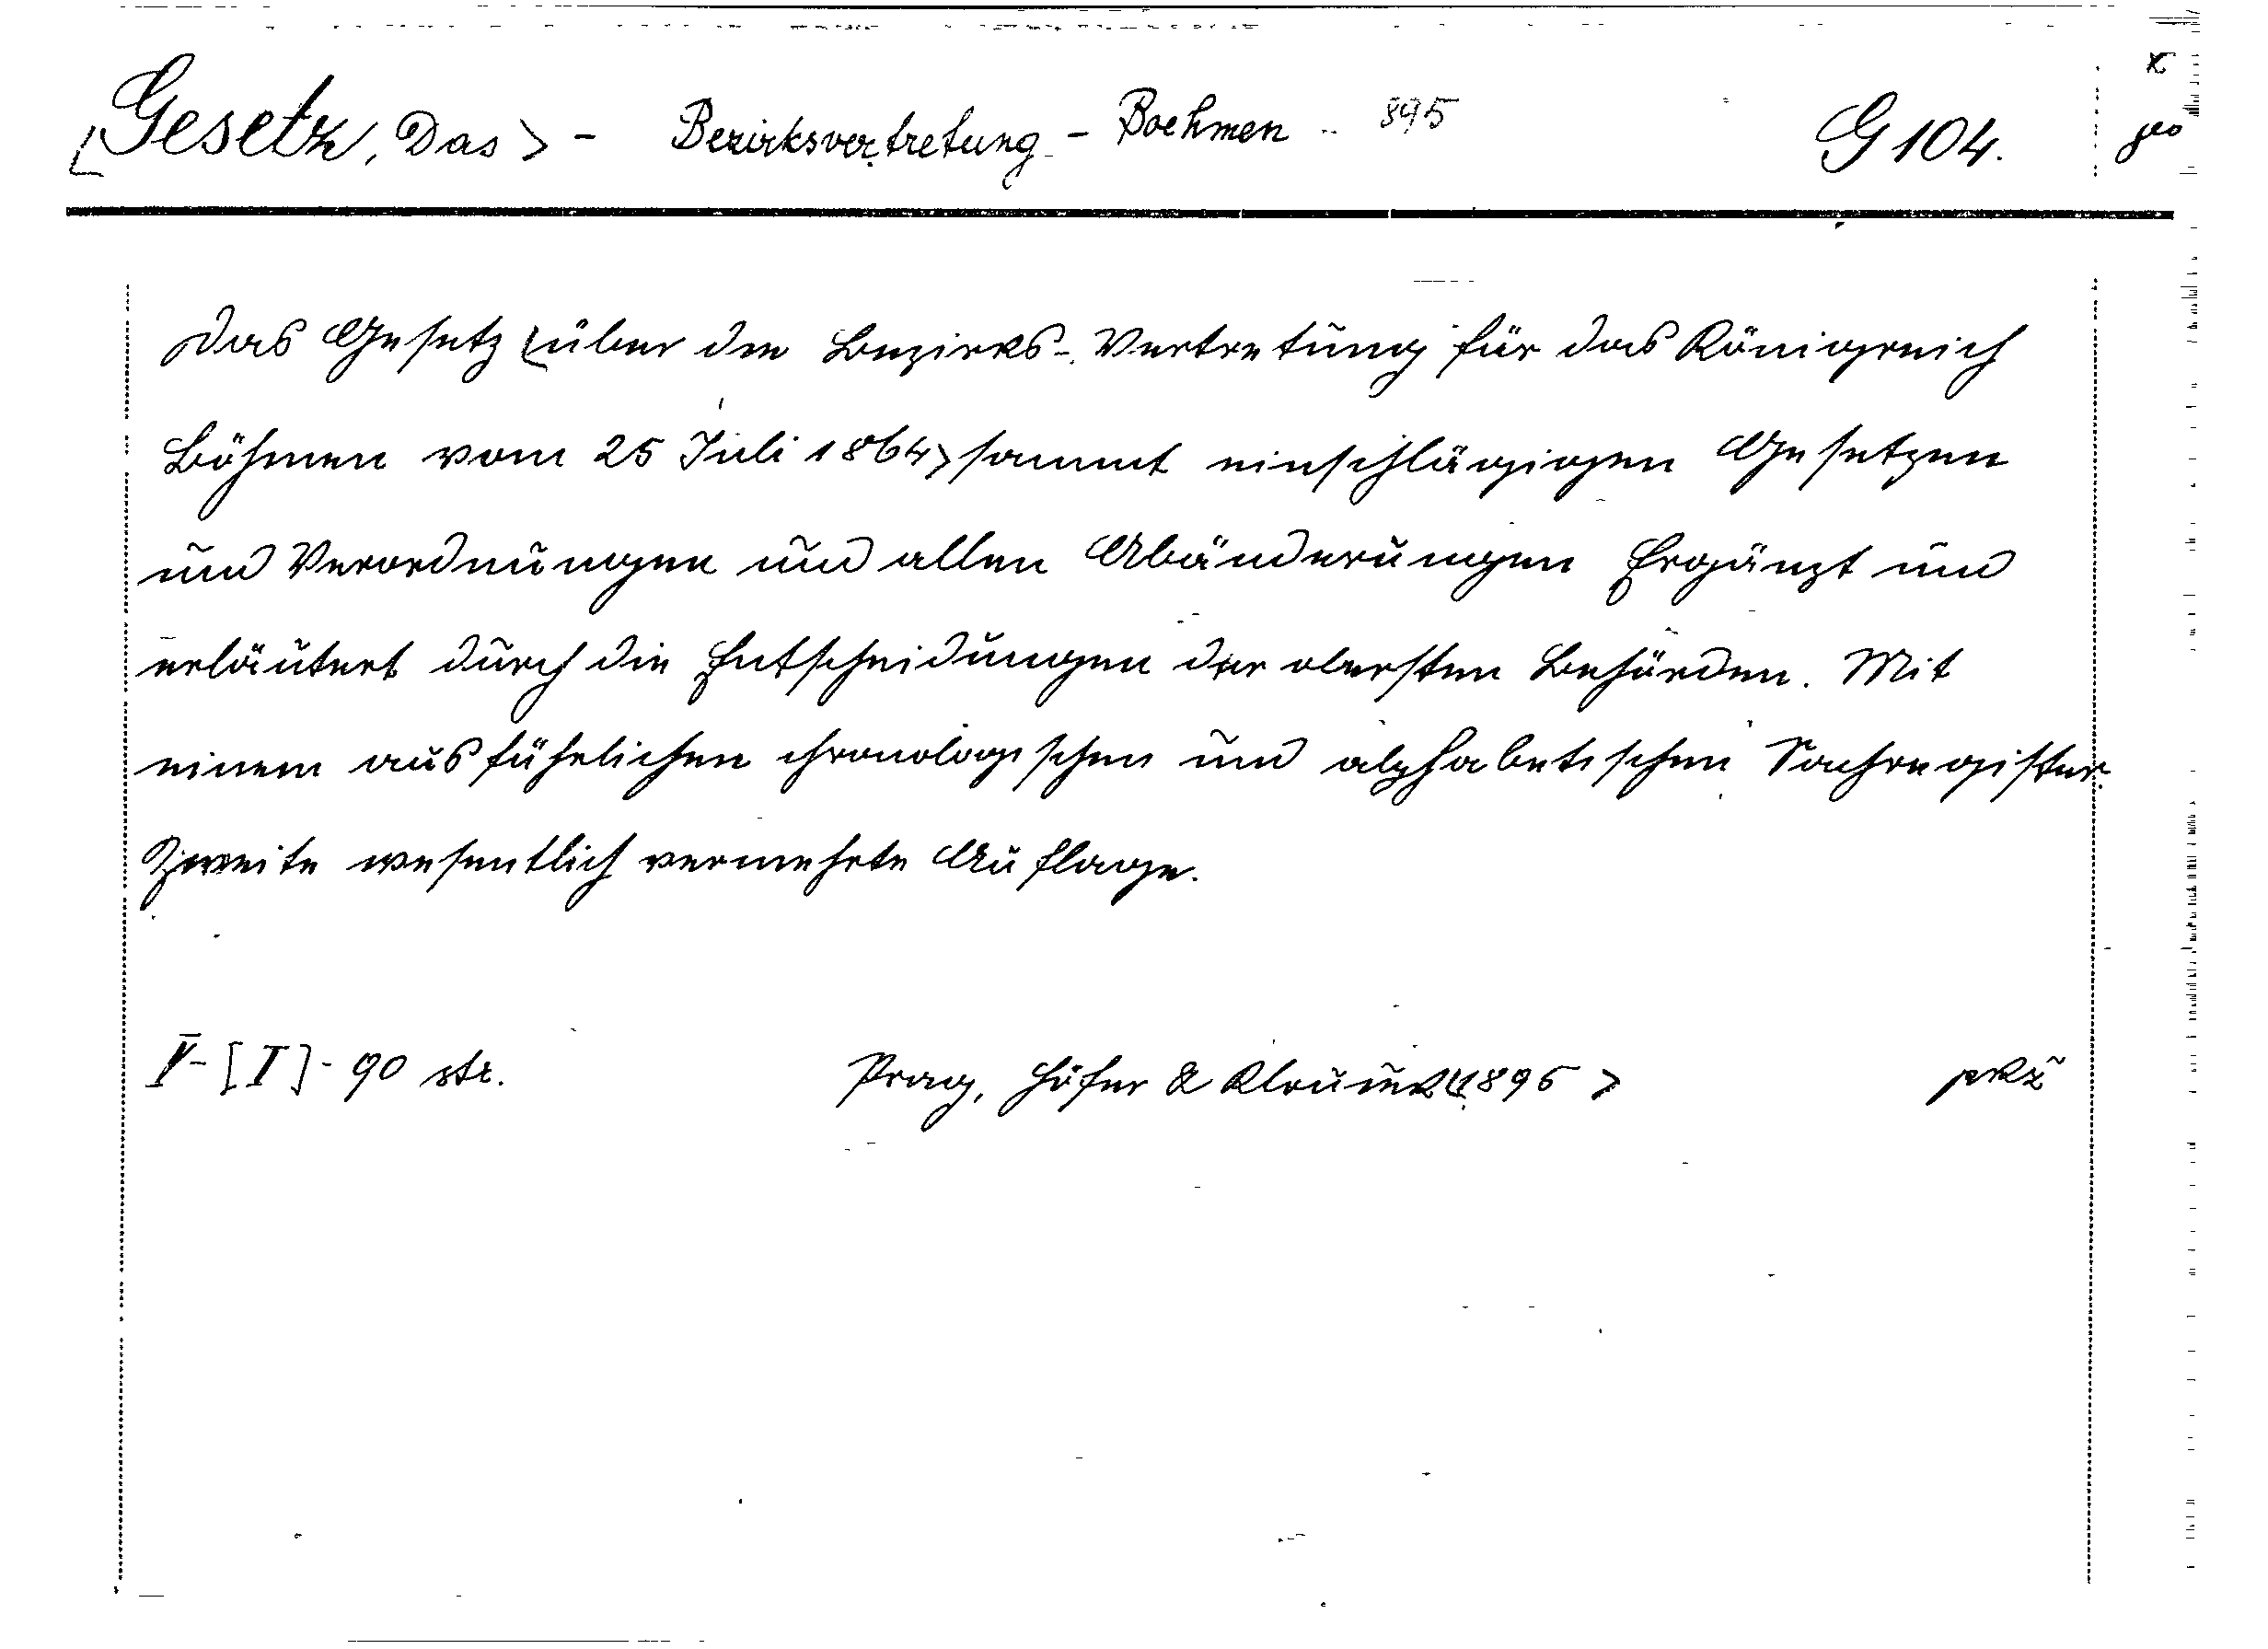 [Gesetz, Das > - Bezirksvertretung - Boehmen - 895 G 104.
Das Gesetz [über die Bezirks-Vertretung für das Königreich
Böhmen vom 25 Juli 1864> sammt einschlägigen Gesetzen
und Verordnungen und allen Abänderungen Ergänzt und
erläutert durch die Entscheidungen der obersten Behörden. Mit
einem ausführlichen chronologischen und alphabetischen Sachregister.
Zweite wesentlich vermehrte Auflage.
V-[I]-90 str. Prag, Höfer & Klouček 1895 >